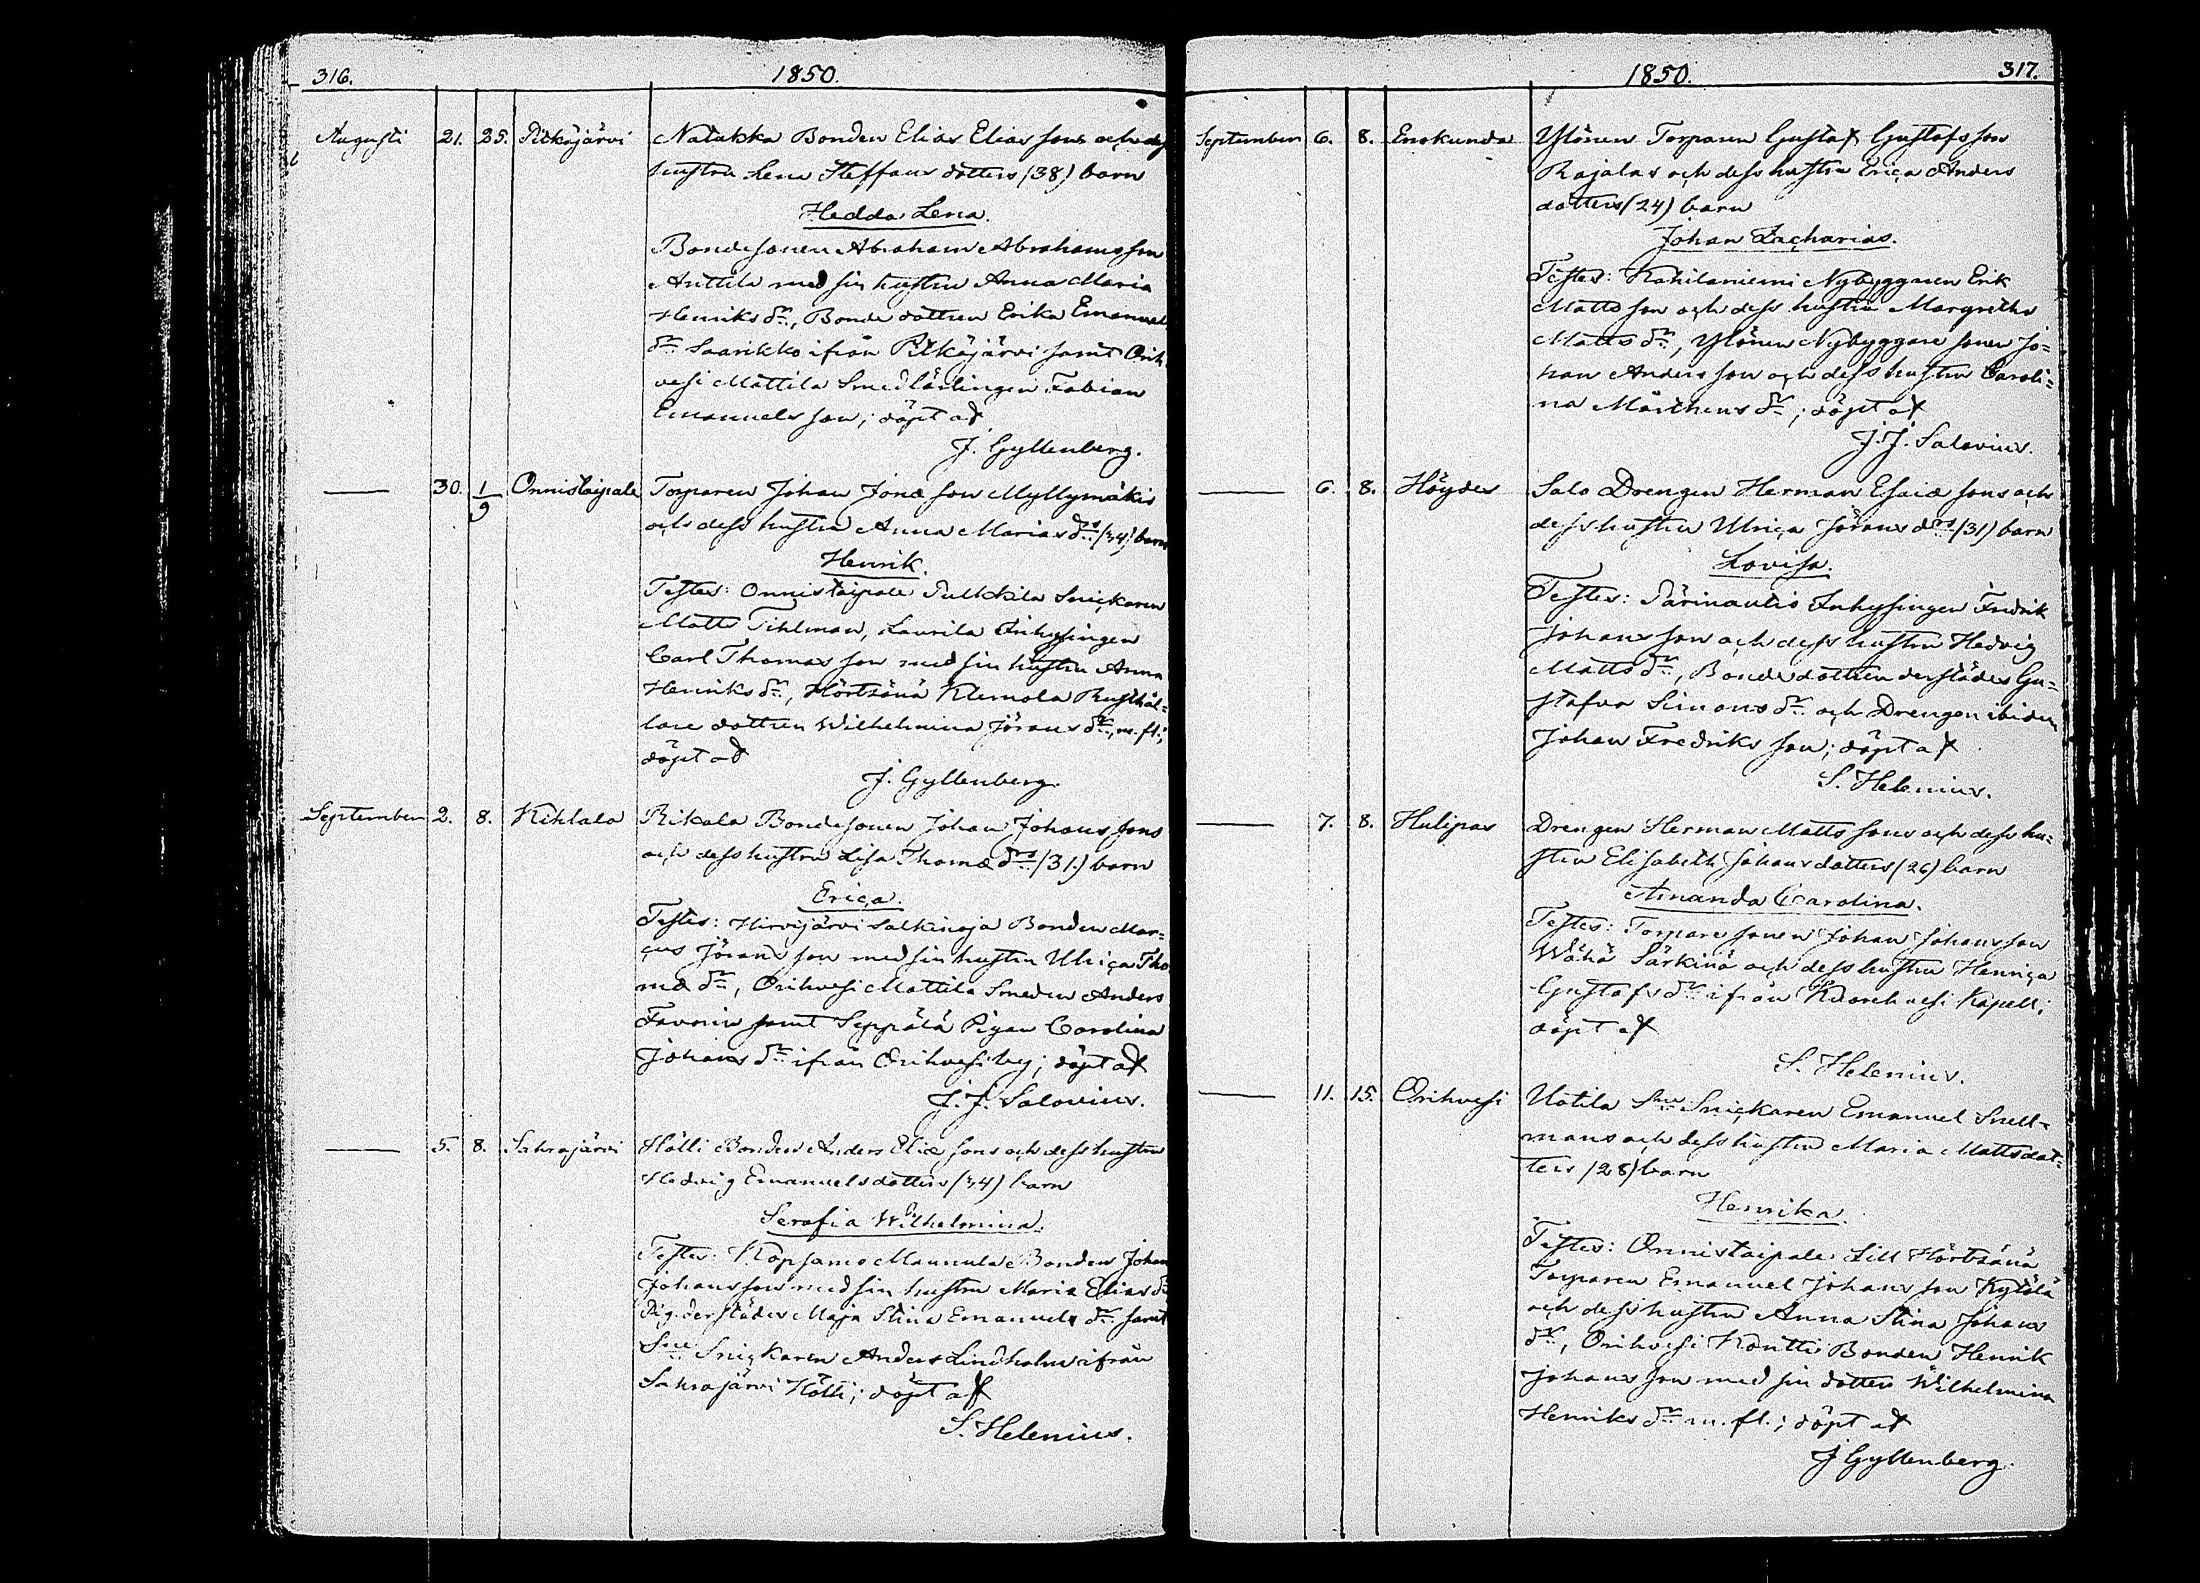 316. 1850.
Augusti 21. 25. Pitkäjärvi Natukka Bonden Elias Elias sons och dess
hustru Lena Steffans dotters (38) barn
Hedda Lena.
Bondesonen Abraham Abrahamsson
Anttila med sin hustru Anna Maria
Henriks dr, Bonde dottren Erika Emanuels
dr Saarikko ifrån Pitkäjärvi samt Orih
vesi Mattila Smedlärlingen Fabian
Emanuelsson; döpt af
J. Gyllenberg.
— 30. 1/9 Onnistaipale Torparen Johan Jonæ son Myllymäkis
och dess hustru Anna Marias drs (34) barn
Henrik.
Testes: Onnistaipale Pulkkila Snickaren
Matts Tihlman, Laurila Inhysingen
Carl Thomas son med sin hustru Anna
Henriks dr, Hörtsänä Klemola Rusthål-
lare dottren Wilhelmina Jörans dr, m. fl.;
döpt af
J. Gyllenberg.
September 2. 8. Kihlala Rikala Bondesonen Johan Johans sons
och dess hustru Lisa Thomæ drs (31.) barn
Erica.
Testes: Hirvijärvi Salkinoja Bonden Mar-
cus Jörans son med sin hustru Ulrica Tho
mæ dr, Orihvesi Mattila Smeden Anders
Favorin samt Seppälä Pigan Carolina
Johans dr ifrån Orihvesi by; döpt af
J. J. Salovius.
— 5. 8. Sahrajärvi Hölli Bonden Anders Eliæ sons och dess hustru
Hedvig Emanuelsdotters (34) barn
Serafia Wilhelmina.
Testes: Kopsamo Mannula Bonden Johan
Johansson med sin hustru Maria Elias dr
Pig. derstädes Maja Stina Emanuels dr samt
Sne Snickaren Anders Lindholm ifrån
Sahrajärvi Hölli; döpt af
S. Helenius.
1850. 317.
September 6. 8. Enokunda Ylönen Torparen Gustaf Gustafsson
Rajalas och dess hustru Erica Anders
dotters (24) barn
Johan Zacharias.
Testes: Kahilaniemi Nybyggaren Erik
Matts son och dess hustru Margretha
Matts dr, Ylönen Nybyggare sonen Jo-
han Anders son och dess hustru Caroli-
na Mårthens dr; döpt af
J. J. Salovius.
— 6. 8. Höydes Salo Drengen Herman Esaiæ sons och
dess hustru Ulrica Jörans drs (31) barn
Lovisa.
Testes: Inhysingen Fredrik
Johans son och dess hustru Hedvig
Matts dr, Bonde dottren derstädes Gu-
stafva Simons dr och Drengen ibidem
Johan Fredriks son; döpt af
S. Helenius.
— 7. 8. Hulipas Drengen Herman Matts sons och dess hu-
stru Elisabeth Johans dotters (26) barn
Amanda Carolina.
Testes: Torpare sonen Johan Johansson
Wähä Särkinä och dess hustru Henrica
Gustafs dr ifrån Kuorehvesi Kapell;
döpt af
S. Helenius.
— 11. 15. Orihvesi Uotila Sne Snickaren Emanuel Snell-
mans och dess hustru Maria Mattsdot-
ters (28) barn
Henrika.
Testes: Onnistaipale Lill Hörtsänä
Torparen Emanuel Johans son Kytölä
och dess hustru Anna Stina Johans
dr, Orihvesi Kontti Bonden Henrik
Johans son med sin dotter Wilhelmina
Henriks dr m. fl.; döpt af
J Gyllenberg.